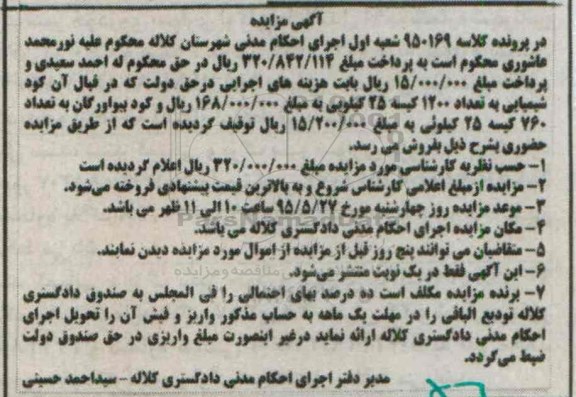 آگهی مزایده
در پرونده کلاسه ۹۵۰۱۶۹ شعبه اول اجرای احکام مدنی شهرستان کلاله محکوم علیه نورمحمد
عاشوری محکوم است به پرداخت مبلغ ۳۲۰/۸۴۲/۱۱۴ ریال در حق محکوم له احمد سعیدی و
پرداخت مبلغ ۱۵/۰۰۰/۰۰۰ ریال بابت هزینه های اجرایی درحق دولت که در قبال آن کود
شیمیایی به تعداد ۱۲۰۰ کیسه ۲۵ کیلویی به مبلغ ۱۶۸/۰۰۰/۰۰۰ ریال و کود بیواورگان به تعداد
۷۶۰ کیسه ۲۵ کیلوئی به مبلغ ۱۵/۲۰۰/۰۰۰ ریال توقیف گردیده است که از طریق مزایده
حضوری بشرح ذیل بفروش می رسد.
۱- حسب نظریه کارشناسی مورد مزایده مبلغ ۳۲۰/۰۰۰/۰۰۰ ریال اعلام گردیده است
۲- مزایده ازمبلغ اعلامی کارشناس شروع و به بالاترین قیمت پیشنهادی فروخته می‌شود.
۳- موعد مزایده روز چهارشنبه مورخ ۹۵/۵/۲۷ ساعت ۱۰ الی ۱۱ ظهر می باشد.
۴- مکان مزایده اجرای احکام مدنی دادگستری کلاله می باشد.
۵- متقاضیان می توانند پنج روز قبل از مزایده از اموال مورد مزایده دیدن نمایند.
۶- این آگهی فقط در یک نوبت منتشر می‌شود.
۷- برنده مزایده مکلف است ده درصد بهای احتمالی را فی المجلس به صندوق دادگستری
کلاله تودیع الباقی را در مهلت یک ماهه به حساب مذکور واریز و فیش آن را تحویل اجرای
احکام مدنی دادگستری کلاله ارائه نماید درغیر اینصورت مبلغ واریزی در حق صندوق دولت
ضبط می‌گردد.
مدیر دفتر اجرای احکام مدنی دادگستری کلاله - سیداحمد حسینی